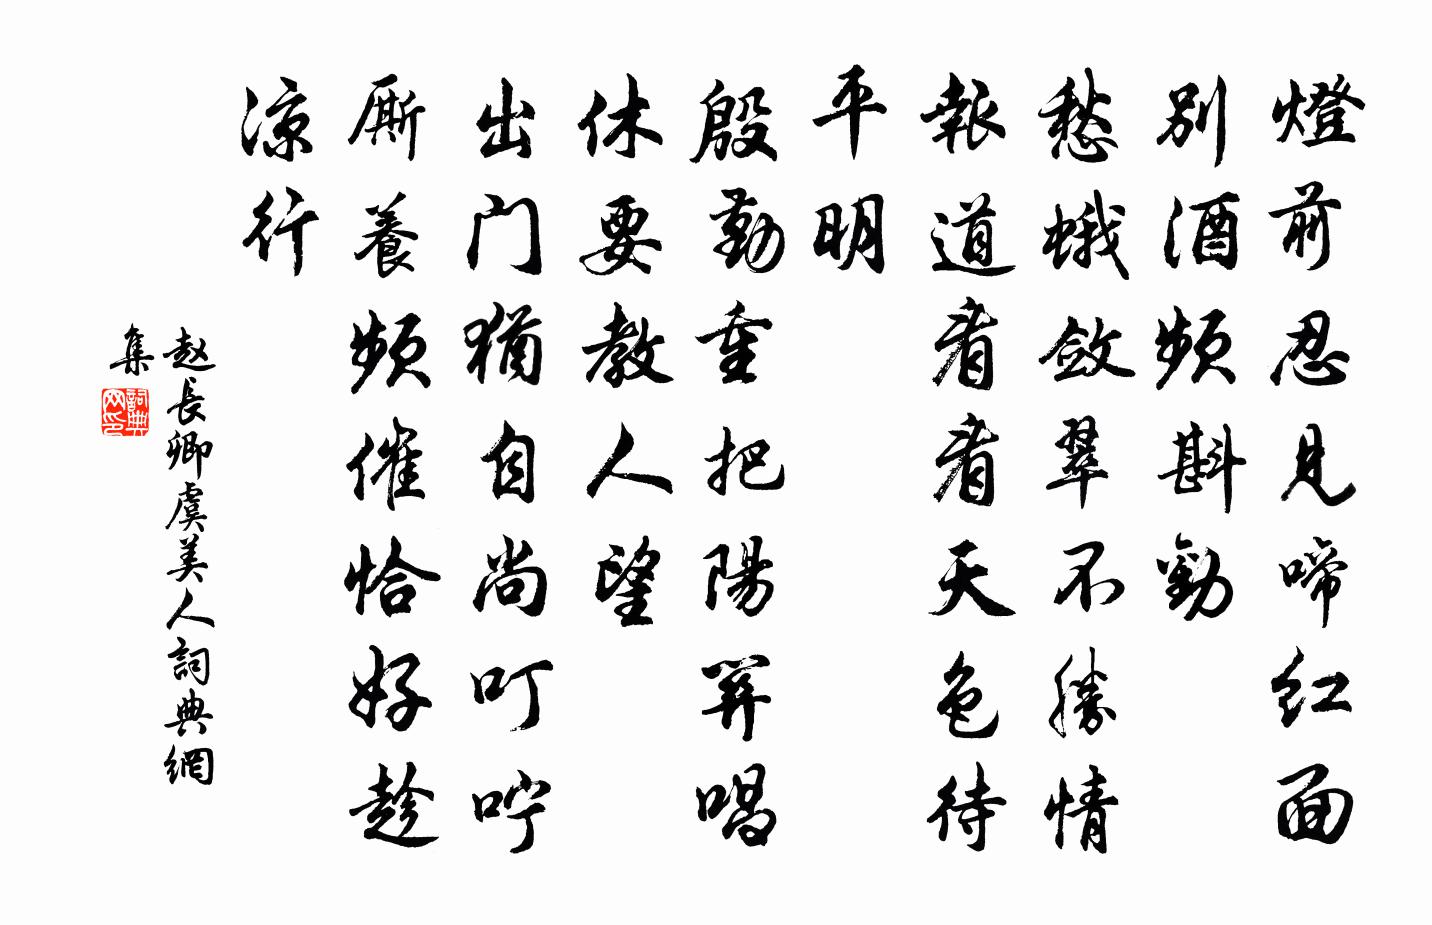 燈前忍見啼紅面
別酒頻斟勸
愁蛾斂翠不勝情
報道看看天色待
平明
殷勤重把陽關唱
休要教人望
出門猶自尚叮嚀
厮養頻催恰好趁
涼行
赵長卿虞美人詞典網
集
詞典
网印